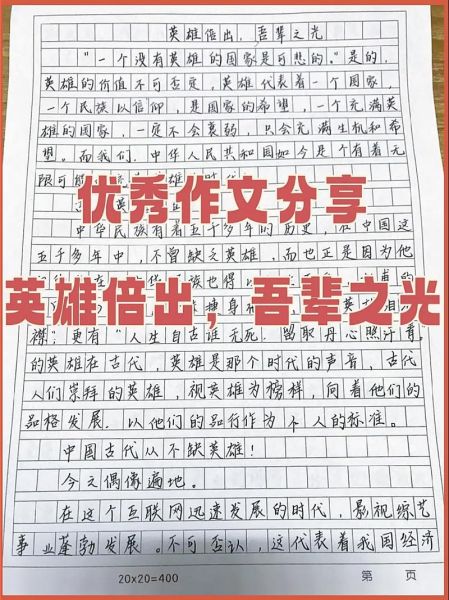 英雄倍出,吾辈之光
"一个没有英雄的国家是可悲的。"是的,
英雄的价值不可否定,英雄代表着一个国家,
一个民族以信仰,是国家的希望,一个充满英
雄的国家,一定不会衰弱,只会充满生机和希
望。而我们,中华人民共和国如今是个有着无
限可能
优秀作文分享
中华民族有着五千多年的历史,在中国这
五千多年中,不曾缺乏英雄,而也正是因为他
族也得以
英雄倍出,吾辈之光
襟?更有"人生自古谁无死,留取丹心照汗青。
的英雄在古代,英雄是那个时代的声音,古代
人们崇拜的英雄,视英雄为榜样,向着他们的
品格发展,以他们的品行作为个人的标准。
中国古代从不缺英雄!
今之偶像遍地。
在这个互联网迅速发展的时代,影视综艺
事业蓬勃发展。不可否认,这代表着我国经济
20x20=400 第 页